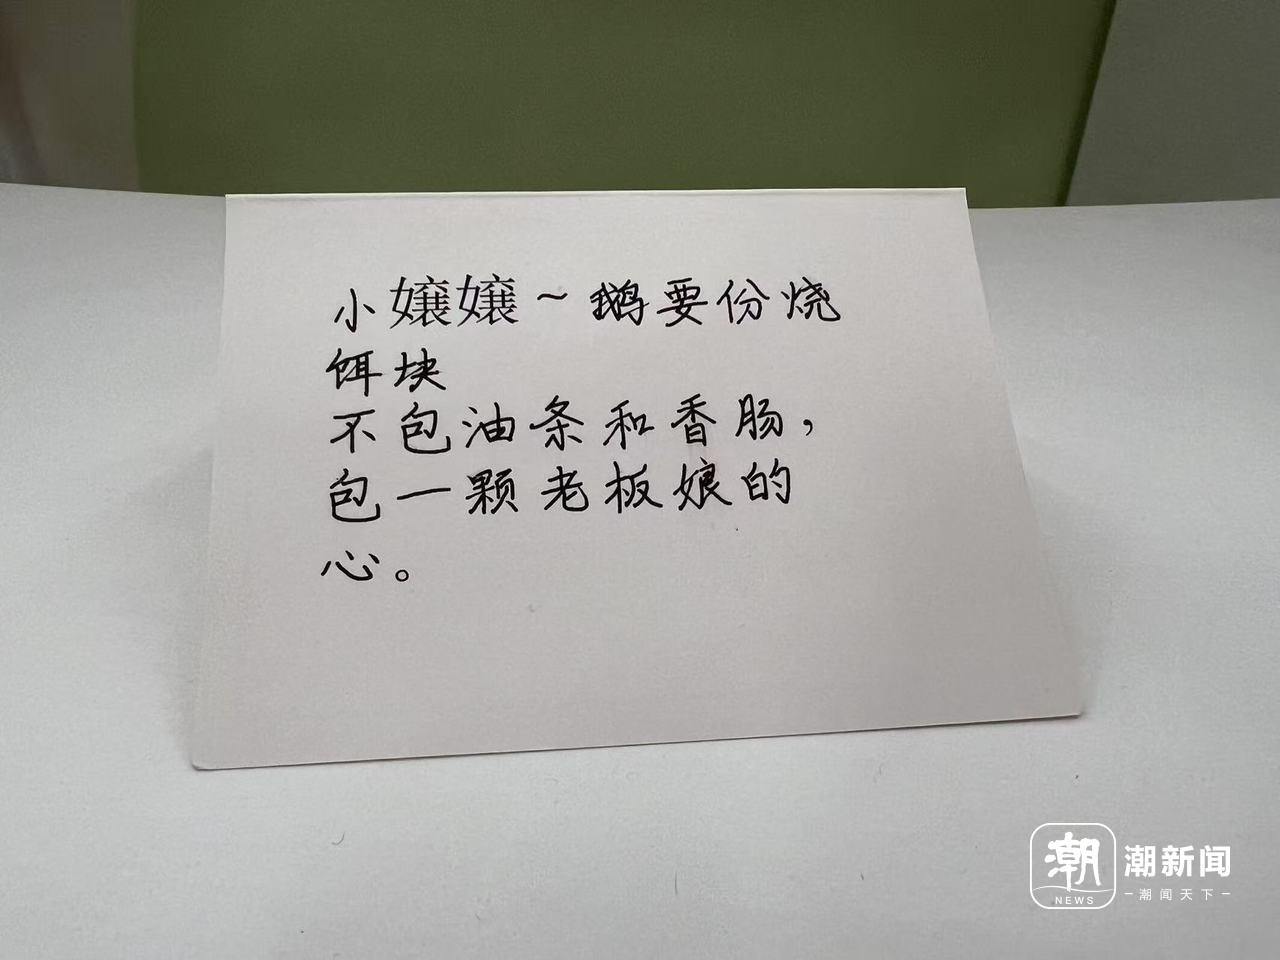 小孃孃～鹅要份烧
饵块
不包油条和香肠，
包一颗老板娘的
心。
潮 NEWS
潮新闻
潮闻天下